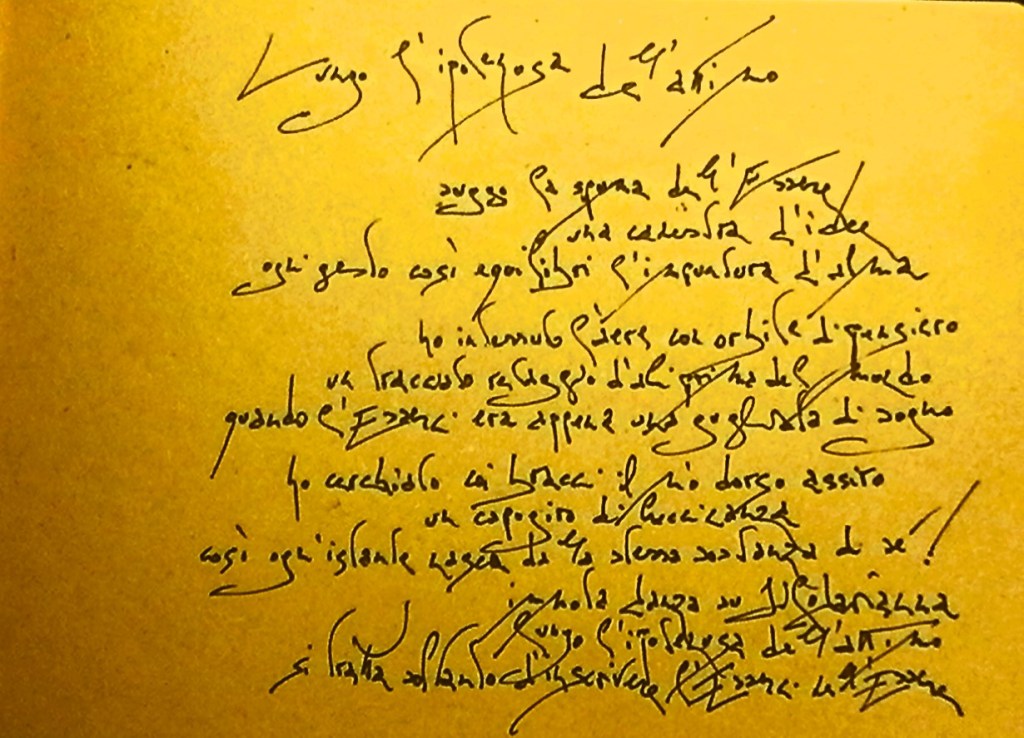 Lungo l'ipotenusa dell'attimo
suggo la spuma dell'Essere
una canestra d'idee
ogni gesto così equilibri l'impuntura d'alma
ho intessuto l'aere con orbite di pensiero
un tracciato retaggio d'ali prima del mondo
quando l'Esserci era appena una gugliata di sogno
ho cerchiato coi bracci il mio dorso assiro
un capogiro di luccicanza
così ogn'istante nasca dalla stessa sostanza di sé!
immota danza su
lungo l'ipotenusa dell'attimo
si tratta soltanto d'inscrivere l'Esserci nell'Essere